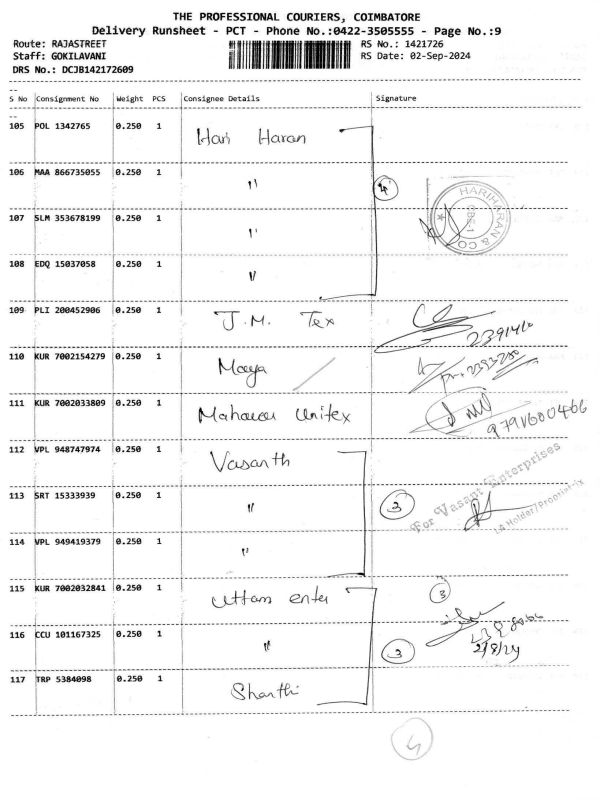 THE PROFESSIONAL COURIERS, COIMBATORE
Delivery Runsheet - PCT - Phone No.:0422-3505555 - Page No.:9
Route: RAJASTREET RS No.: 1421726
Staff: GOKILAVANI RS Date: 02-Sep-2024
DRS No.: DCJB142172609
S No Consignment No Weight PCS Consignee Details Signature
105 POL 1342765 0.250 1 Hari Haran
106 MAA 866735055 0.250 1 " 4
HARIHARAN & CO
CBE-1
107 SLM 353678199 0.250 1 "
108 EDQ 15037058 0.250 1 "
109 PLI 200452906 0.250 1 J.M. Tex
110 KUR 7002154279 0.250 1 Maya
111 KUR 7002033809 0.250 1 Mahaveer Unitex
9791600466
112 VPL 948747974 0.250 1 Vasanth
For Vasant Enterprises
113 SRT 15333939 0.250 1 " 3
114 VPL 949419379 0.250 1 "
115 KUR 7002032841 0.250 1 Uttam enter 3
116 CCU 101167325 0.250 1 " 3
2/8/24
117 TRP 5384098 0.250 1 Shanthi